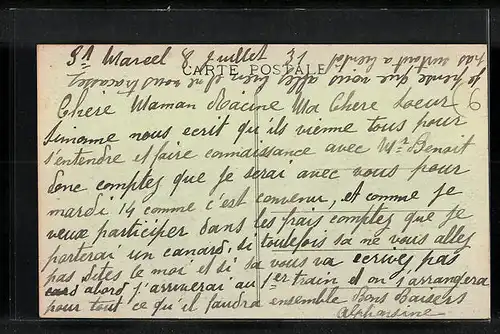 St Marcel 8 Juillet 31
CARTE POSTALE
Chere Maman Racine Ma Chere Soeur
Simonne nous ecrit qu'ils vienne tous pour
s'entendre et faire connaissance avec Mr Benoit
donc comptez que je serai avec vous pour
mardi 14 comme c'est convenu, et comme je
veux participer dans les frais comptez que je
porterai un canard, si toutefois sa ne vous allez
pas dites le moi et si sa vous va ecrivez pas
abord j'arriverai au 1er train et on s'arrangera
pour tout ce qu'il faudra ensemble Bons Baisers
Alphonsine
je pense que vous allez bien et ne vous tracassez
pas surtout a bientot